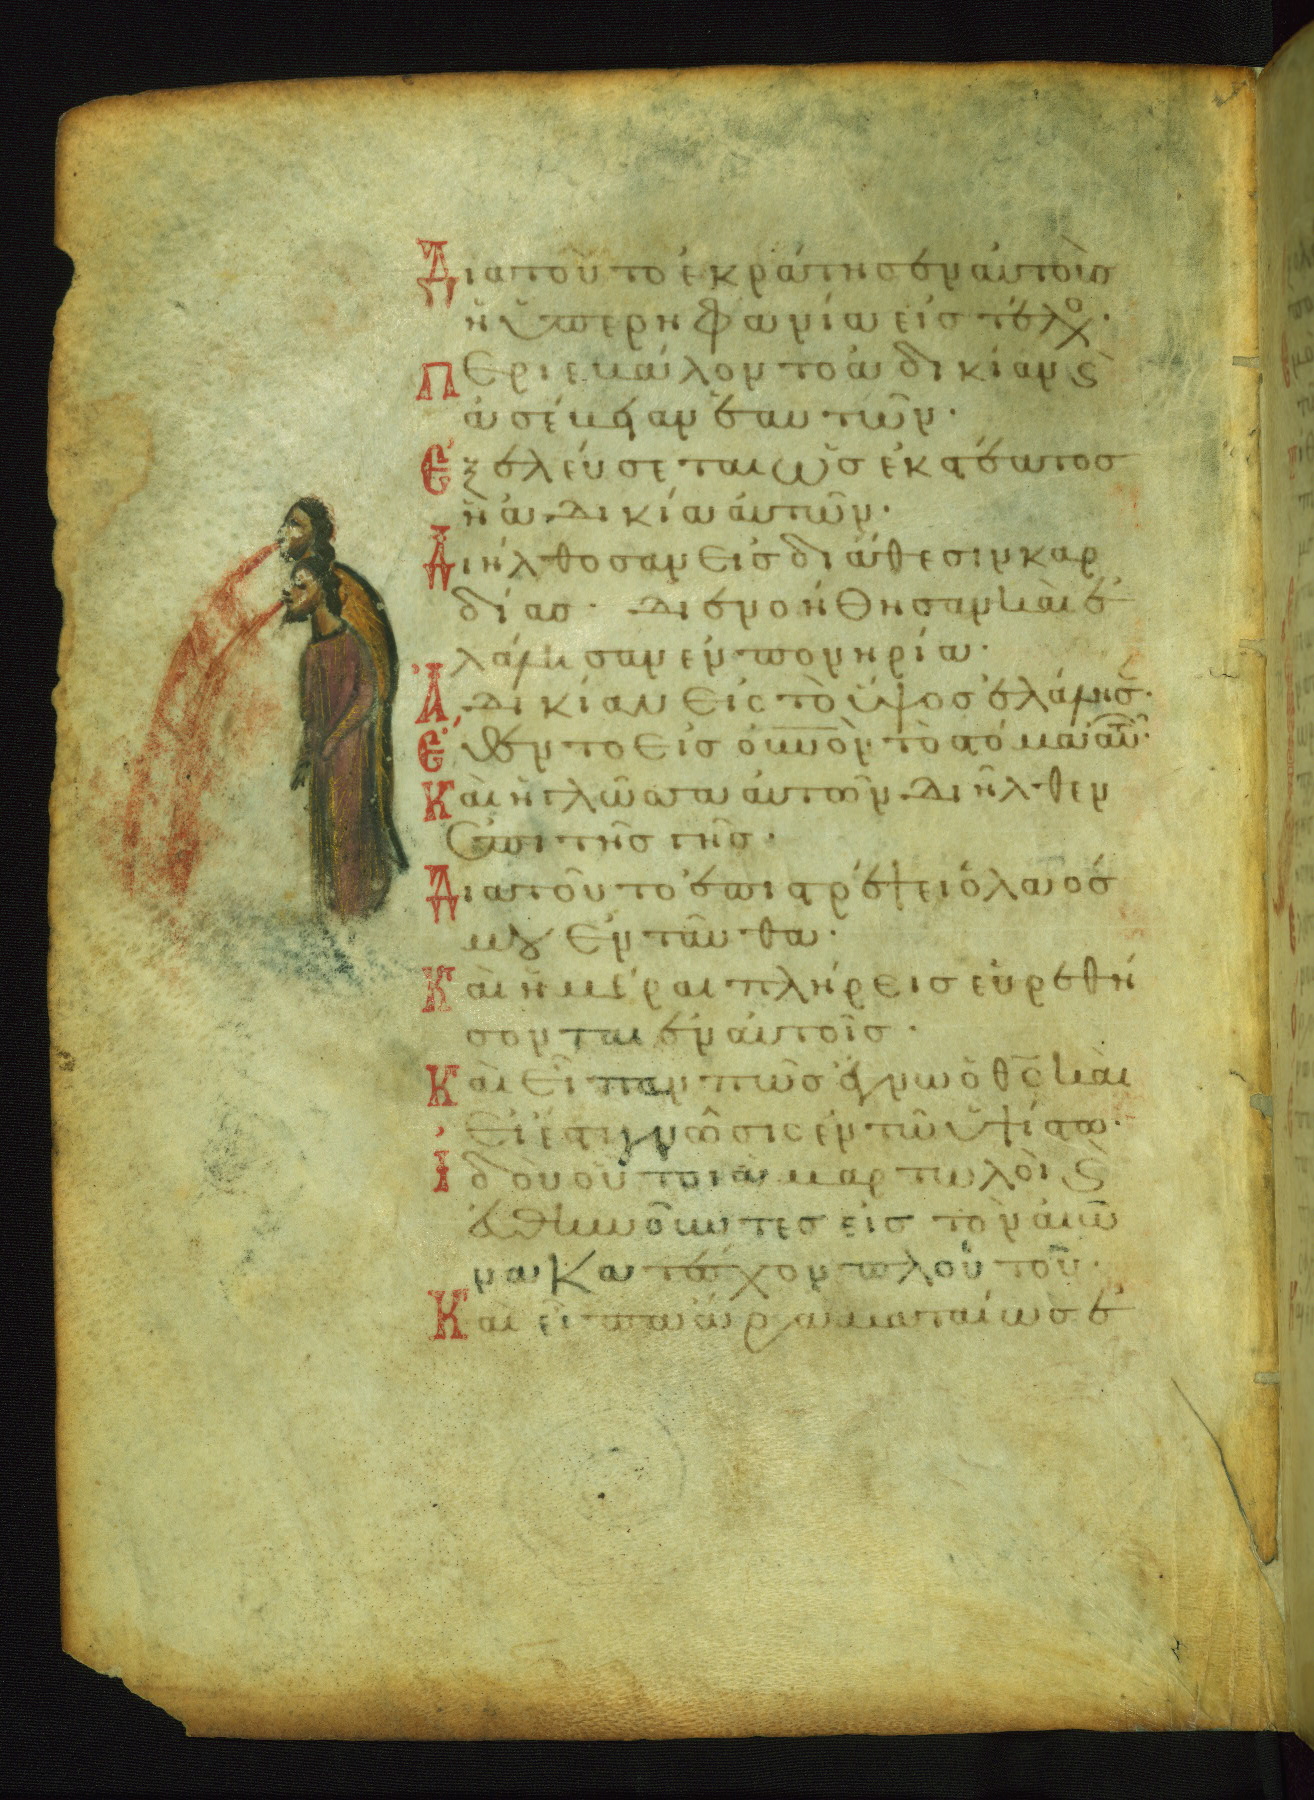 Διατοῦτο ἐκράτησεν αὐτοὺσ
ἡ ὑπερηφανία εἰσ τέλος·
Περιεβάλοντο ἀδικίαν ϛ
ἀσέβειαν ἑαυτῶν·
Ἐξελεύσεται ὡσ ἐκ στέατοσ
ἡ ἀδικία αὐτῶν·
Διήλθοσαν εἰσ διάθεσιν καρ
δίασ· διενοήθησαν καὶ ἐ
λάλησαν ἐν πονηρία·
Ἀδικίαν εἰς τὸ ὕψοσ ἐλάλησ·
Ἔθεντο εἰσ οὐνὸν τὸ στόμα αὐτῶν·
Καὶ ἡ γλῶσσα αὐτῶν διῆλθεν
ἐπὶ τῆσ γῆσ·
Διατοῦτο ἐπιστρέψει ὁ λαόσ
μου ἐνταῦθα·
Καὶ ἡμέραι πλήρεισ εὑρεθή
σονται ἐν αὐτοῖσ·
Καὶ εἶπαν πῶσ ἔγνω ὁ θς καὶ
εἰ ἔστι γνῶσις ἐν τῶ ὑψίστω·
Ἰδοὺ οὗτοι ἁμαρτωλοὶ ϛ
εὐθηνοῦντες εἰσ τὸν αἰῶ
να κατέσχον πλούτου·
Καὶ εἶπα ἄρα ματαίωσ ἐ